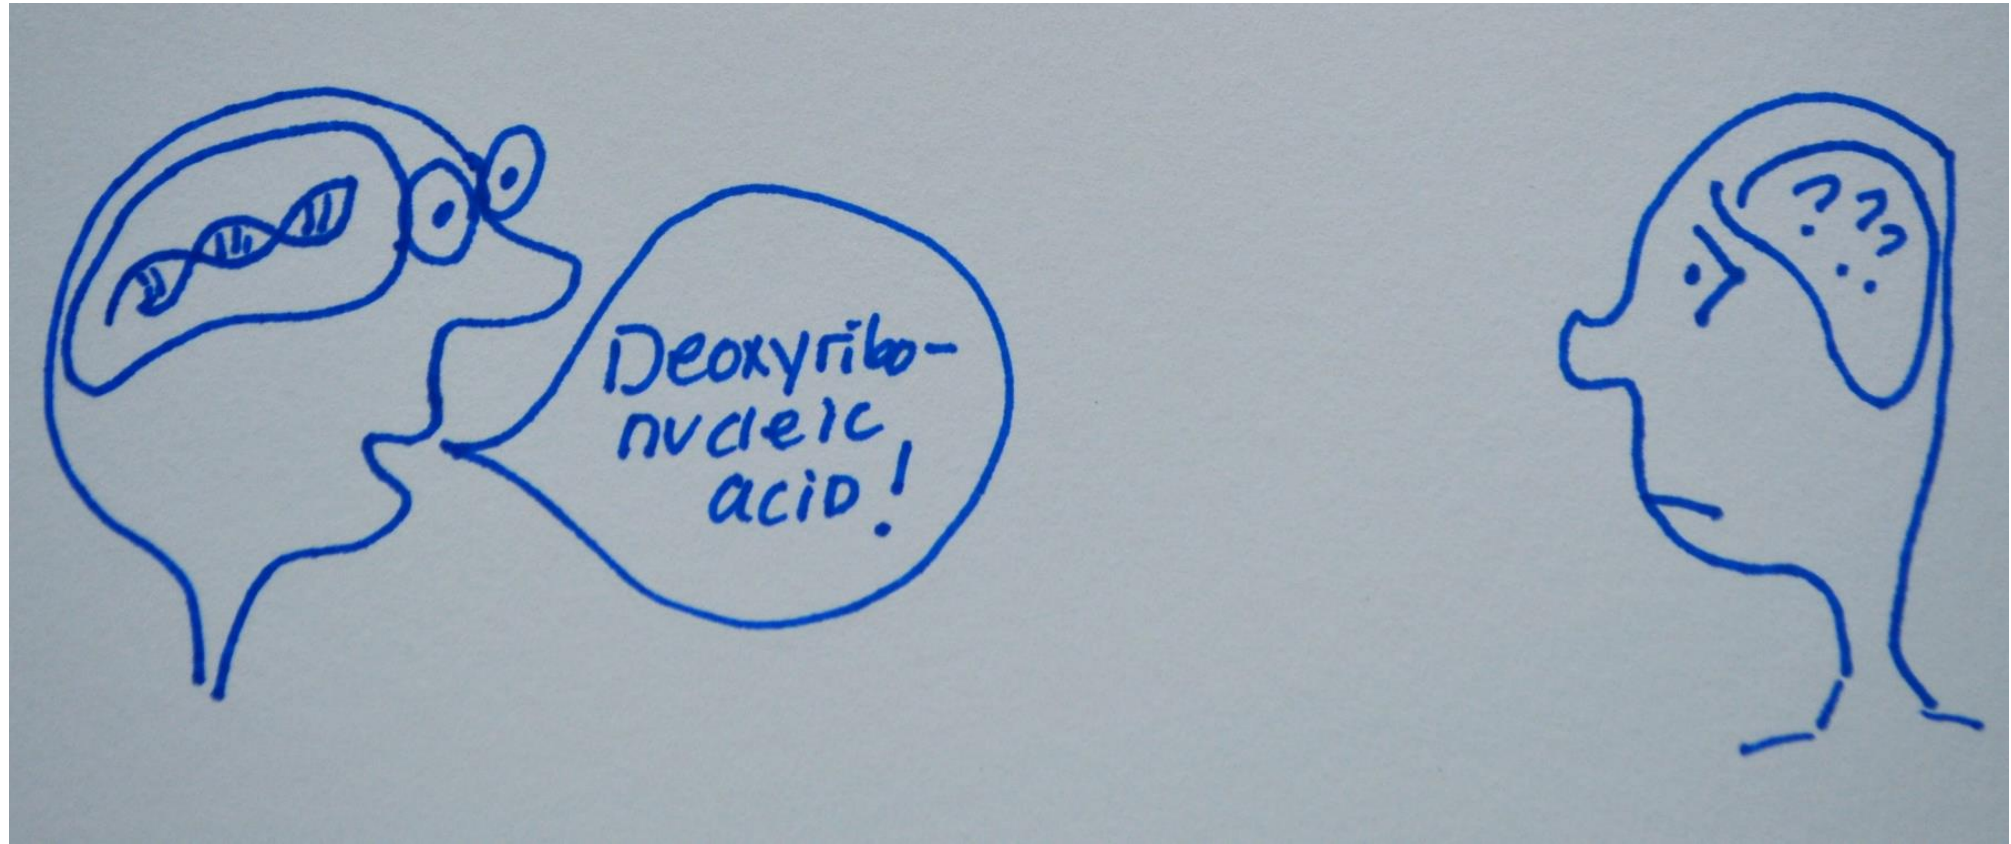 Deoxyribo-
nucleic
acid!
? ? ?